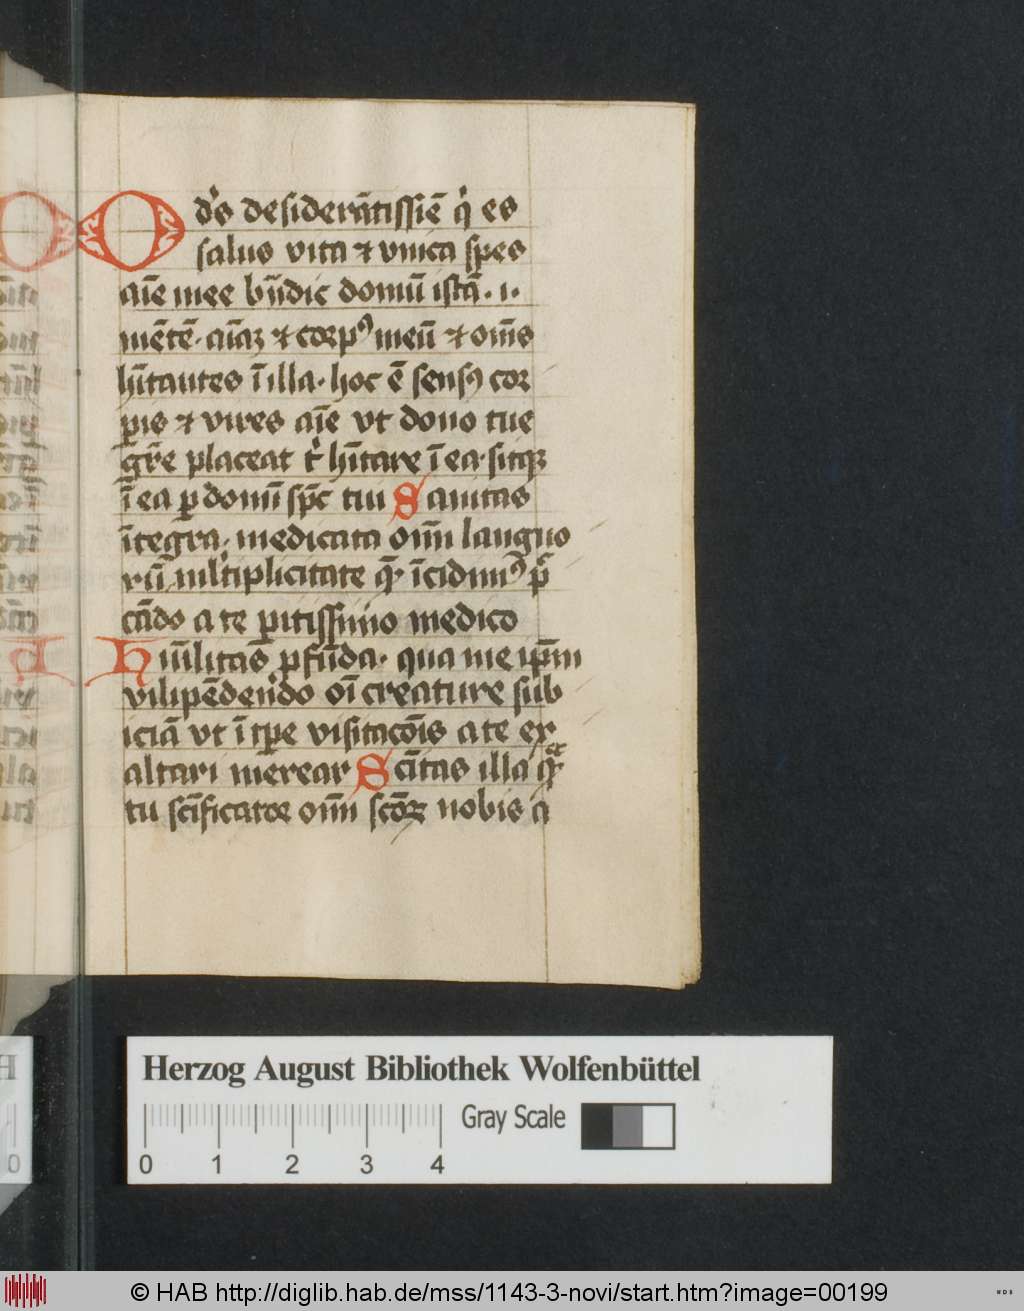 O dn̄s desiderātissiē q' es
salus vita ⁊ vnica spes
aīe mee bn̄dic domū istā · i ·
mētē · aīaꝫ ⁊ corpꝰ meū ⁊ om̄s
hn̄tantes ī illa · hoc ē sensꝰ cor
pis ⁊ vires aīe vt dono tue
gr̄e placeat t' hītare ī ea · sitqꝫ
ī ea ꝑ donū sp̄c tui Sanitas
ītegra · medicata om̄i languo
rū ml'tiplicitate q̄ īcidimꝰ
cādo a te ꝑitissimo medico
Hūilitas ꝓfūda · qua me ip̄m
vilipēdendo oī creature sub
iciā vt ī tꝑe visitacōis a te ex
altari merear Sc̄itas illa
tu sc̄ificator om̄i sc̄oꝝ nobis
Herzog August Bibliothek Wolfenbüttel
Gray Scale
0 1 2 3 4
© HAB http://diglib.hab.de/mss/1143-3-novi/start.htm?image=00199